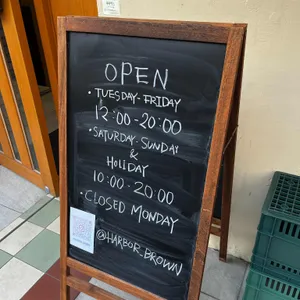 OPEN
• TUESDAY - FRIDAY
12:00 - 20:00
• SATURDAY - SUNDAY
&
HOLIDAY
10:00 - 20:00
• CLOSED MONDAY
@HARBOR_BROWN